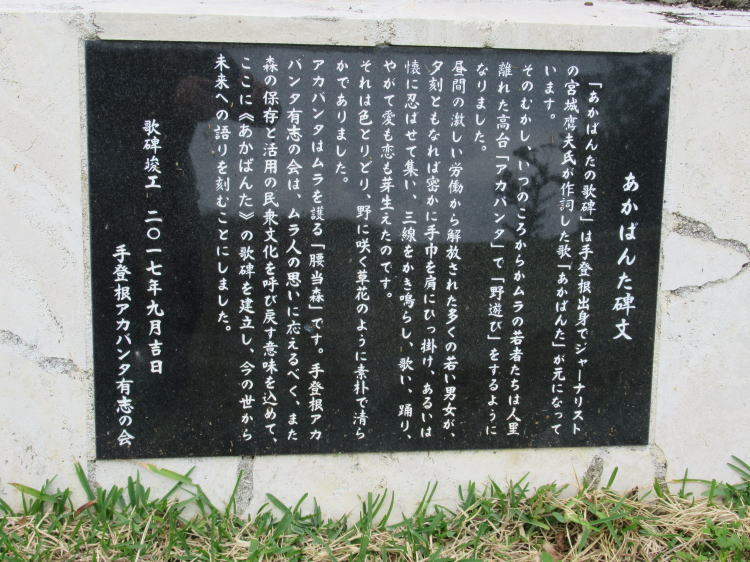 あかばんた碑文
「あかばんたの歌碑」は手登根出身でジャーナリスト
の宮城鷹夫氏が作詞した歌「あかばんた」が元になって
います。
そのむかし、いつのころからかムラの若者たちは人里
離れた高台「アカバンタ」で「野遊び」をするように
なりました。
昼間の激しい労働から解放された多くの若い男女が、
夕刻ともなれば密かに手巾を肩にひっ掛け、あるいは
懐に忍ばせて集い、三線をかき鳴らし、歌い、踊り、
やがて愛も恋も芽生えたのです。
それは色とりどり、野に咲く草花のように素朴で清ら
かでありました。
アカバンタはムラを護る「腰当森」です。手登根アカ
バンタ有志の会は、ムラ人の思いに応えるべく、また
森の保存と活用の民衆文化を呼び戻す意味を込めて、
ここに《あかばんた》の歌碑を建立し、今の世から
未来への語りを刻むことにしました。
歌碑竣工 二〇一七年九月吉日
手登根アカバンタ有志の会